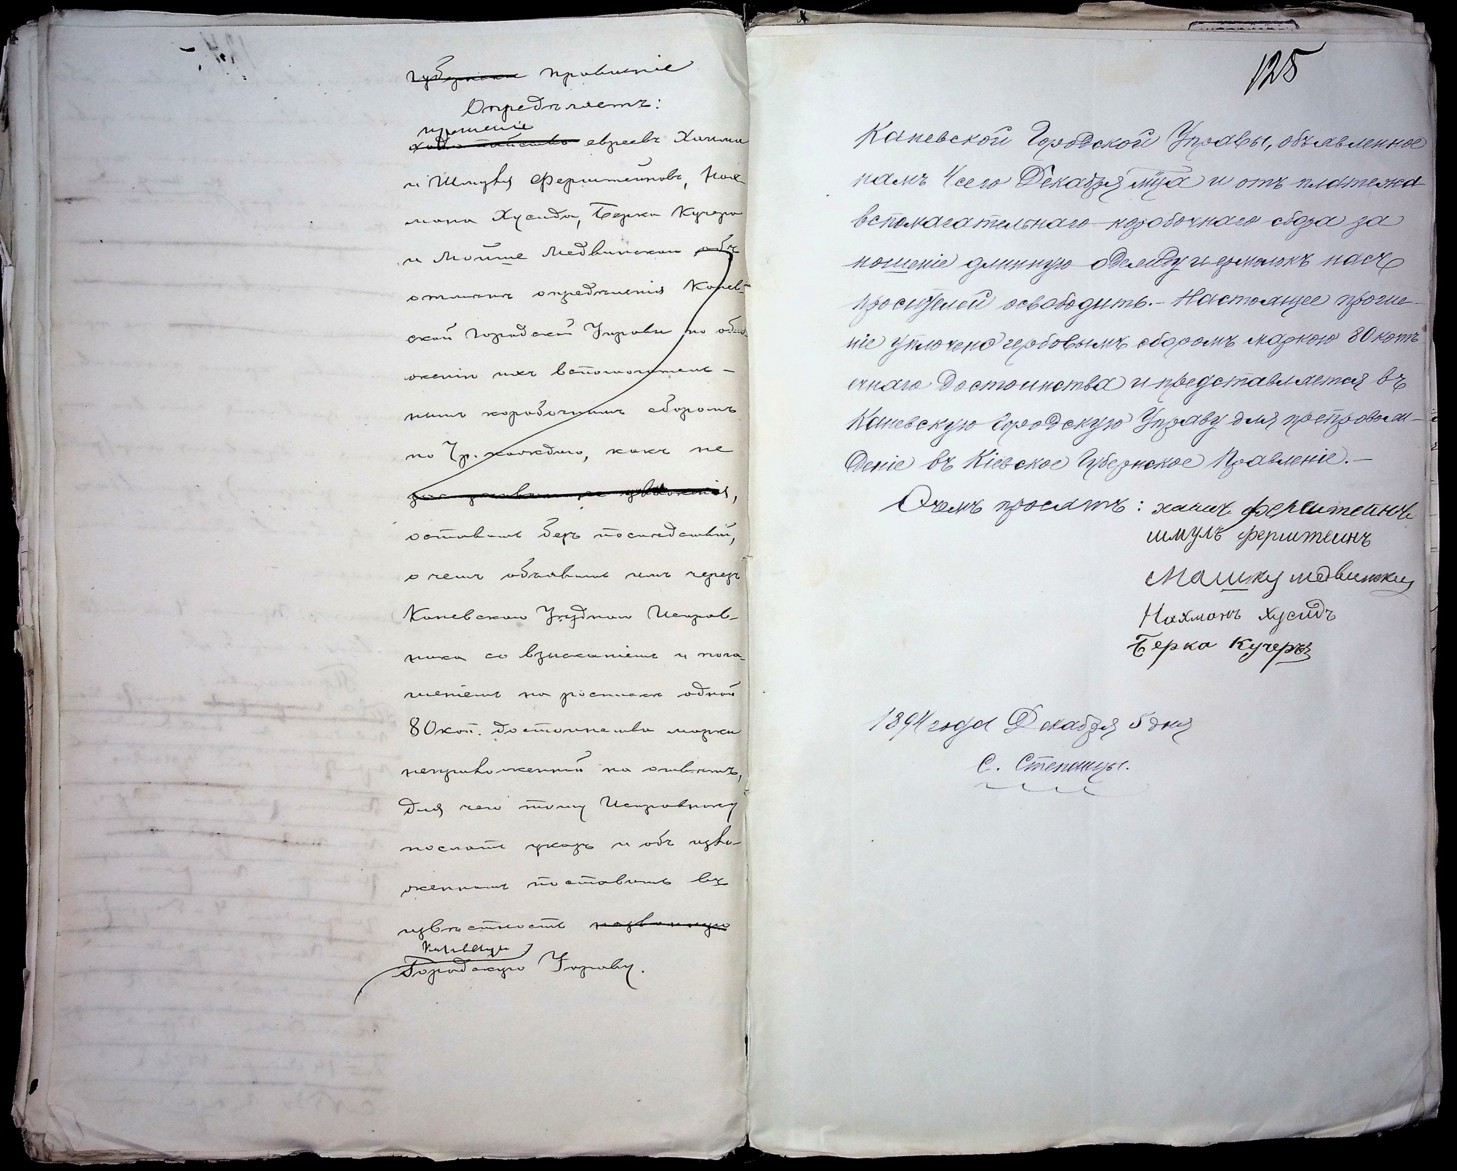 Правленіе
Опредѣляетъ:
прошеніе
евреевъ Хаима
и Шмуля Ферштейновъ, Нох-
мана Хусида, Берка Кучера
и Мойше Медвинскаго объ
отмѣнѣ опредѣленія Канев-
ской Городской Управы по обло-
женію ихъ вспомогатель-
нымъ коробочнымъ сборомъ
по 7 р. каждаго, какъ не
оставить безъ послѣдствій,
о чемъ объявить имъ чрезъ
Каневскаго Уѣзднаго Исправ-
ника со взысканіемъ и пога-
шеніемъ на роспискѣ одной
80 коп. достоинства марки
неприложенной на отвѣтъ,
для чего тому Исправнику
послать указъ и объ изло-
женномъ поставить въ
извѣстность
Каневскую
Городскую Управу.
125
Каневской Городской Управы, объявленное
намъ 4 сего Декабря м-ца и отъ платежа
вспомагательнаго коробочнаго сбора за
ношеніе длинную одежду и ермолокъ насъ
просителей освободить. - Настоящее проше-
ніе уплочено гербовымъ сборомъ маркою 80 копѣ
ечнаго достоинства и представляется въ
Каневскую Городскую Управу для препровож-
деніе въ Кіевское Губернское Правленіе. -
О чемъ просятъ: хаимъ ферштейнъ
шмуль ферштеинъ
Машку медвинский
Нахманъ Хусидъ
Берка Кучеръ
1894 года Декабря 5 дня
с. Степанцы.